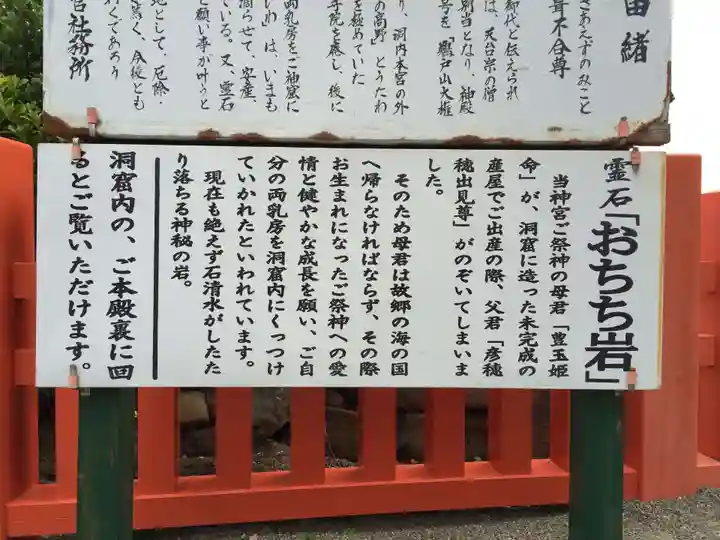 由緒
葺不合尊
きあえずのみこと
都代と伝えられ
は、天台宗の僧
別当となり、神殿
号を「鵜戸山大権
り、洞内本宮の外
の高野」とうたわ
を極めていた
寺院を廃し、後に
両乳房をご神窟に
い」は、いまも
滴らせて、安産、
ている。又、霊石
と願い事が叶うと
宮社務所
霊石「おちち岩」
当神宮ご祭神の母君「豊玉姫
命」が、洞窟に造った未完成の
産屋でご出産の際、父君「彦穂
穂出見尊」がのぞいてしまいま
した。
そのため母君は故郷の海の国
へ帰らなければならず、その際
お生まれになったご祭神への愛
情と健やかな成長を願い、ご自
分の両乳房を洞窟内にくっつけ
ていかれたといわれています。
現在も絶えず石清水がしたた
り落ちる神秘の岩。
洞窟内の、ご本殿裏に回
るとご覧いただけます。